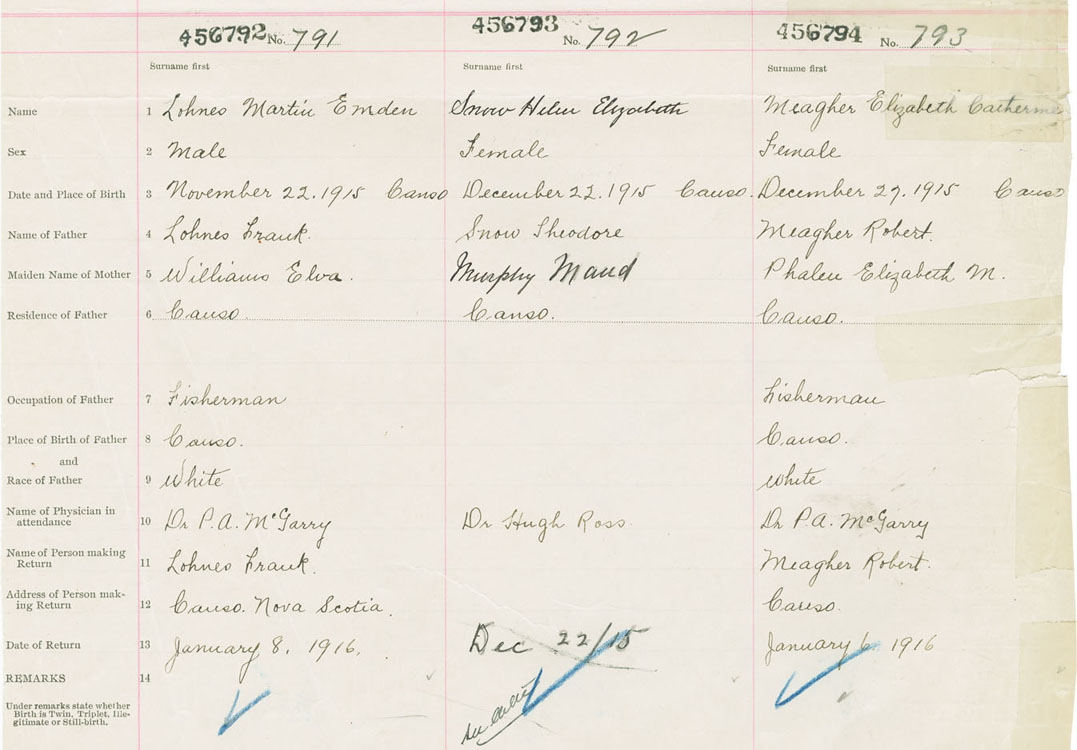 456792 No. 791 456793 No. 792 456794 No. 793
Surname first Surname first Surname first
Name 1 Lohnes Martin Emden Snow Helen Elizabeth Meagher Elizabeth Catherine
Sex 2 Male Female Female
Date and Place of Birth 3 November 22. 1915 Canso December 22. 1915 Canso. December 27. 1915 Canso
Name of Father 4 Lohnes Frank. Snow Theodore Meagher Robert.
Maiden Name of Mother 5 Williams Elva. Murphy Maud Phalen Elizabeth M.
Residence of Father 6 Canso. Canso. Canso.
Occupation of Father 7 Fisherman Fisherman
Place of Birth of Father 8 Canso. Canso.
and
Race of Father 9 White White
Name of Physician in
attendance 10 Dr P.A. McGarry Dr Hugh Ross. Dr P.A. McGarry
Name of Person making
Return 11 Lohnes Frank. Meagher Robert.
Address of Person mak-
ing Return 12 Canso. Nova Scotia. Canso.
Date of Return 13 January 8. 1916. Dec 22/15 January 6. 1916
REMARKS 14
Under remarks state whether
Birth is Twin, Triplet, Ille-
gitimate or Still-birth.